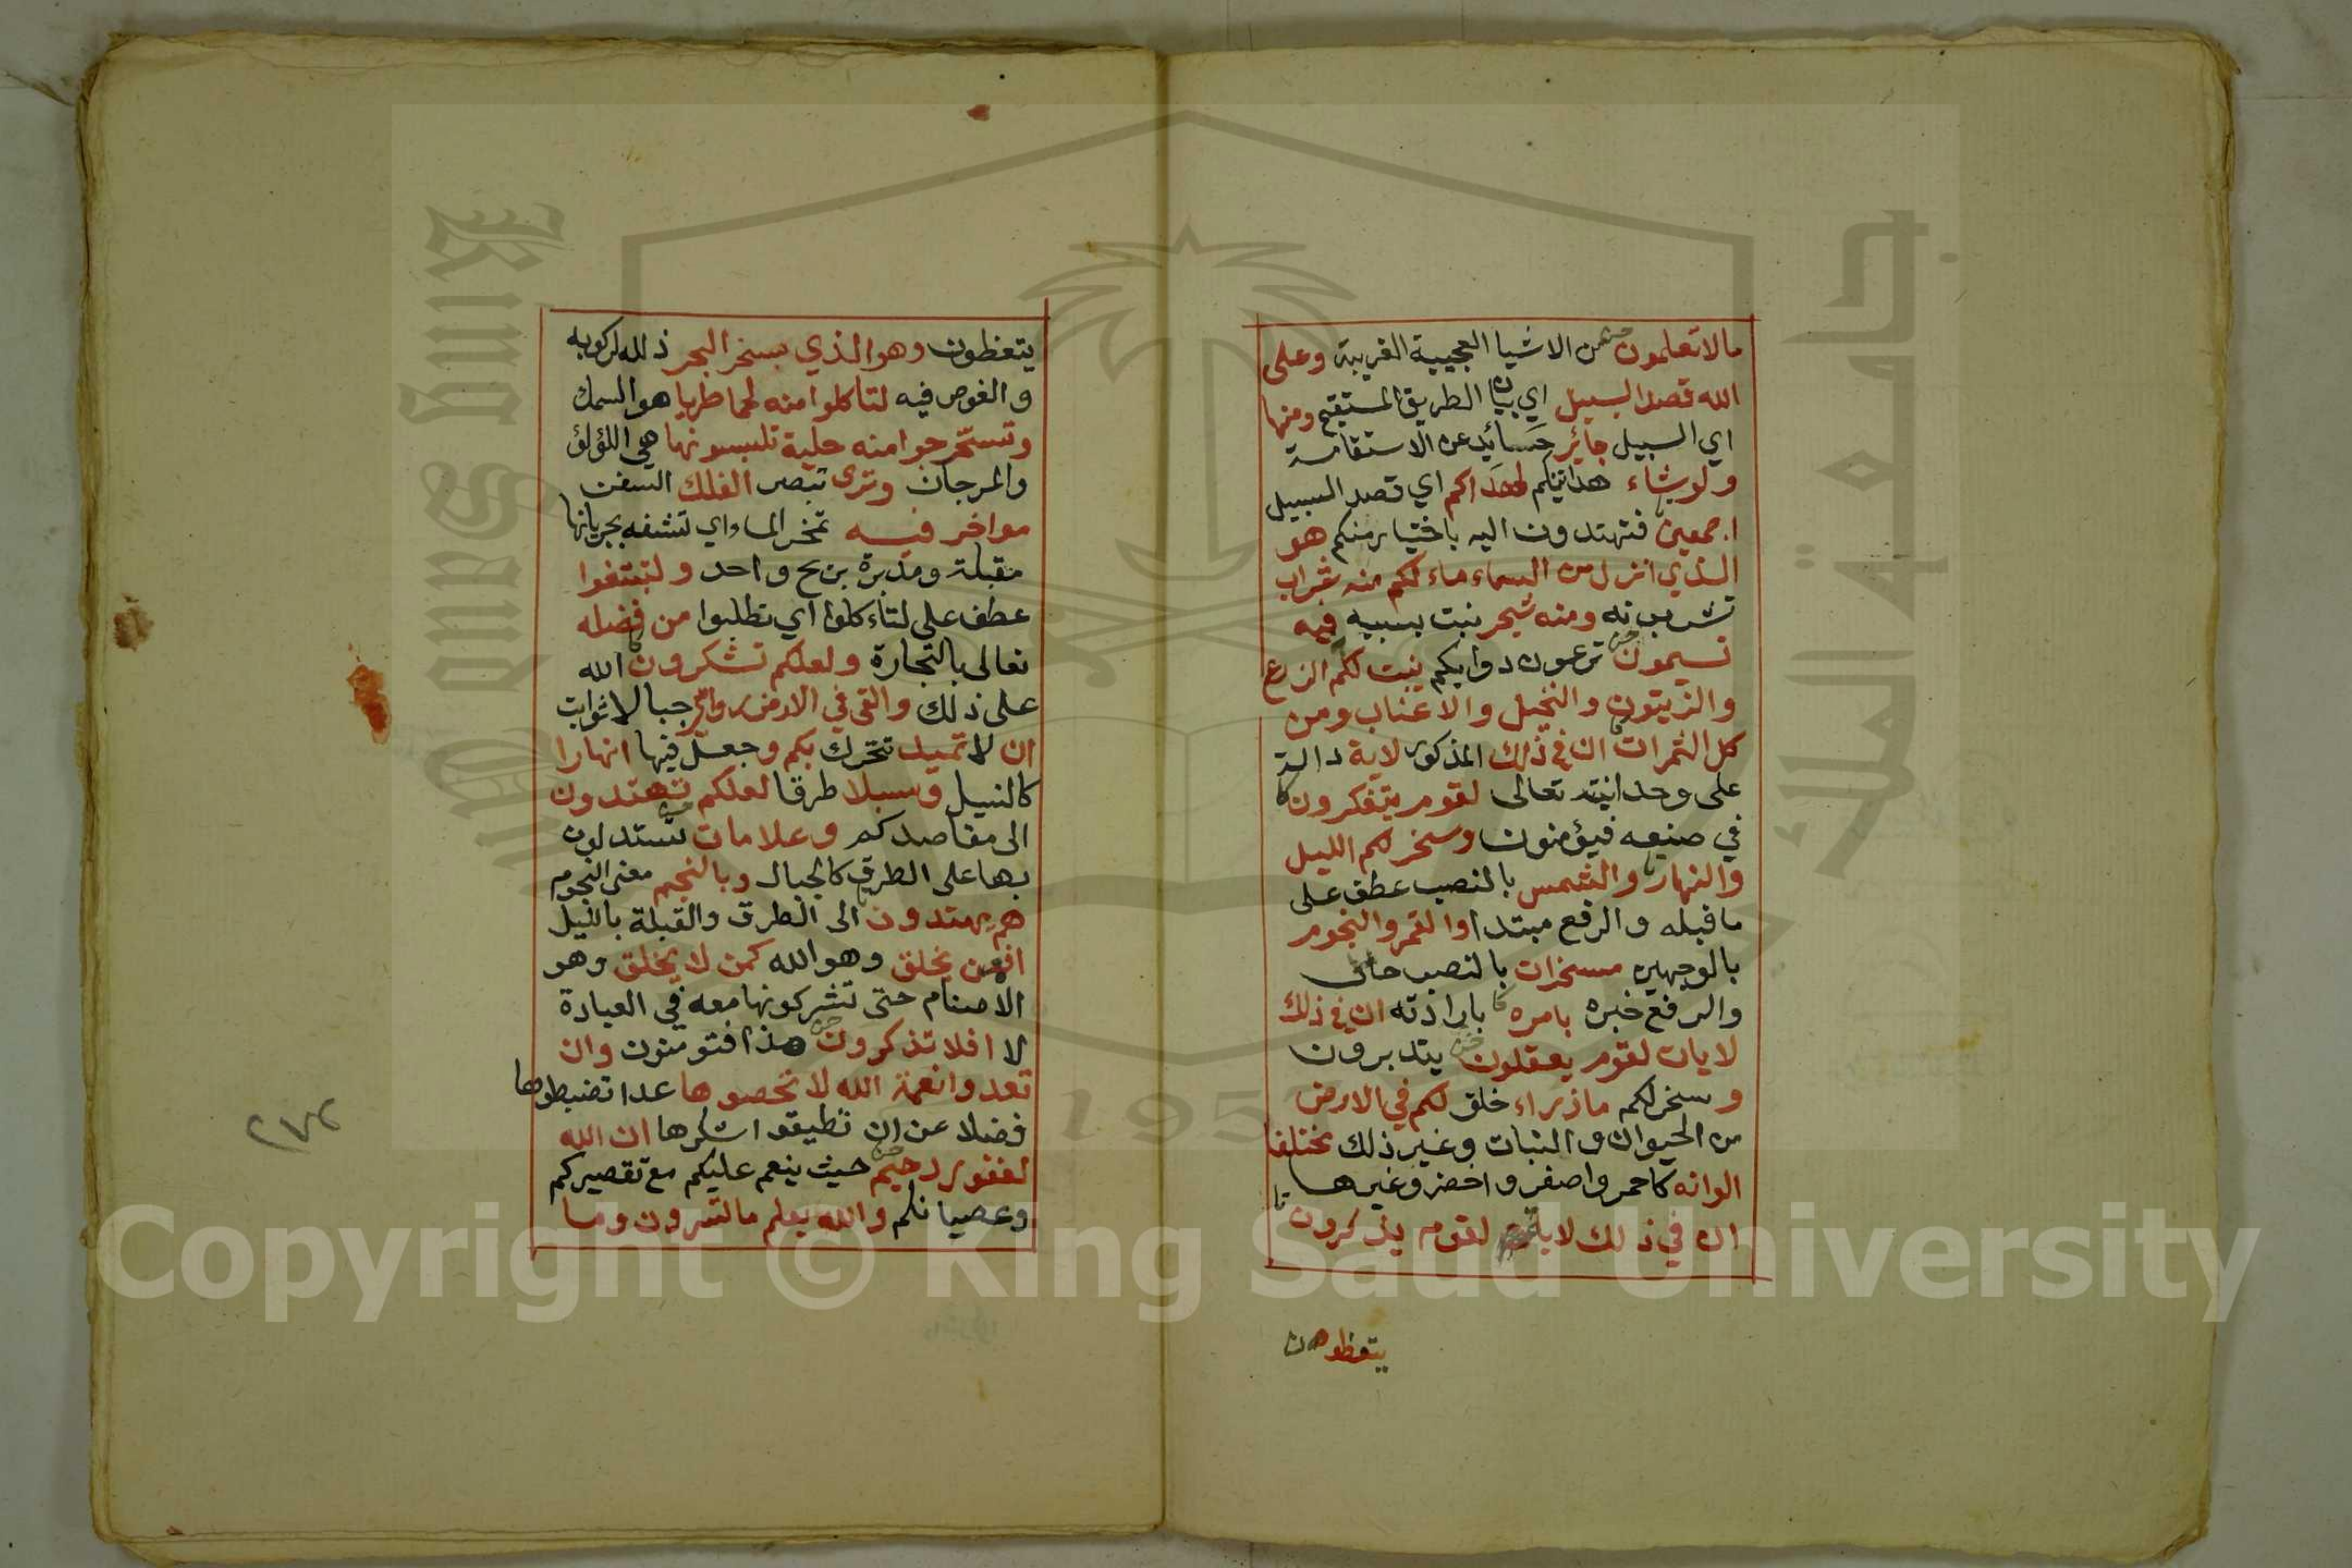 مالا تعلمون من الاشيا العجيبة الغريبة وعلى
الله قصد السبيل اي بيان الطريق المستقيم ومنها
اي السبيل جائر حسائد عن الاستقامة
ولو شاء هدايتكم لهداكم اي قصد السبيل
اجمعين فتهتدون اليه باختيار منكم هو
الذي انزل من السماء ماء لكم منه شراب
تشربونه ومنه شجر ينبت بسببه فيه
تسيمون ترعون دوابكم ينبت لكم الزرع
والزيتون والنخيل والاعناب ومن
كل الثمرات ان في ذلك المذكور لاية دالة
على وحدانيته تعالى لقوم يتفكرون
في صنيعه فيؤمنون وسخر لكم الليل
والنهار والشمس بالنصب عطف على
ما قبله والرفع مبتدا والقمر والنجوم
بالوجهين مسخرات بالنصب حال
والرفع خبره بامره بارادته ان في ذلك
لايات لقوم يعقلون يتدبرون
وسخر لكم ما ذراء خلق لكم في الارض
من الحيوان والنبات وغير ذلك مختلفا
الوانه كاحمر واصفر واخضر وغيرها
ان في ذلك لاية لقوم يذكرون
يتعظون
يتعظون وهو الذي سخر البحر ذلله لركوبه
والغوص فيه لتاكلوا منه لحما طريا هو السمك
وتستخرجوا منه حلية تلبسونها هي اللؤلؤ
والمرجان وترى تبصر الفلك السفن
مواخر فيه تمخر الماء اي تشقه بجريانها
مقبلة ومدبرة بريح واحد ولتبتغوا
عطف على لتاءكلوا اي تطلبوا من فضله
تعالى بالتجارة ولعلكم تشكرون الله
على ذلك والقى في الارض رواسي جبالا ثوابت
ان لا تميد تتحرك بكم وجعل فيها انهارا
كالنيل وسبلا طرقا لعلكم تهتدون
الى مقاصدكم وعلامات تستدلون
بها على الطرق كالجبال وبالنجم معنى النجوم
هم يهتدون الى الطرق والقبلة بالليل
افمن يخلق وهو الله كمن لا يخلق وهو
الاصنام حتى تشركونها معه في العبادة
لا افلا تذكرون هذا فتومنون وان
تعدوا نعمة الله لا تحصوها عدا تضبطوها
فضلا عن ان تطيقوا شكرها ان الله
لغفور رحيم حيث ينعم عليكم مع تقصيركم
وعصيانكم والله يعلم ما تسرون وما
٢٧٤
جامعة الملك
King Saud
195
Copyright © King Saud University